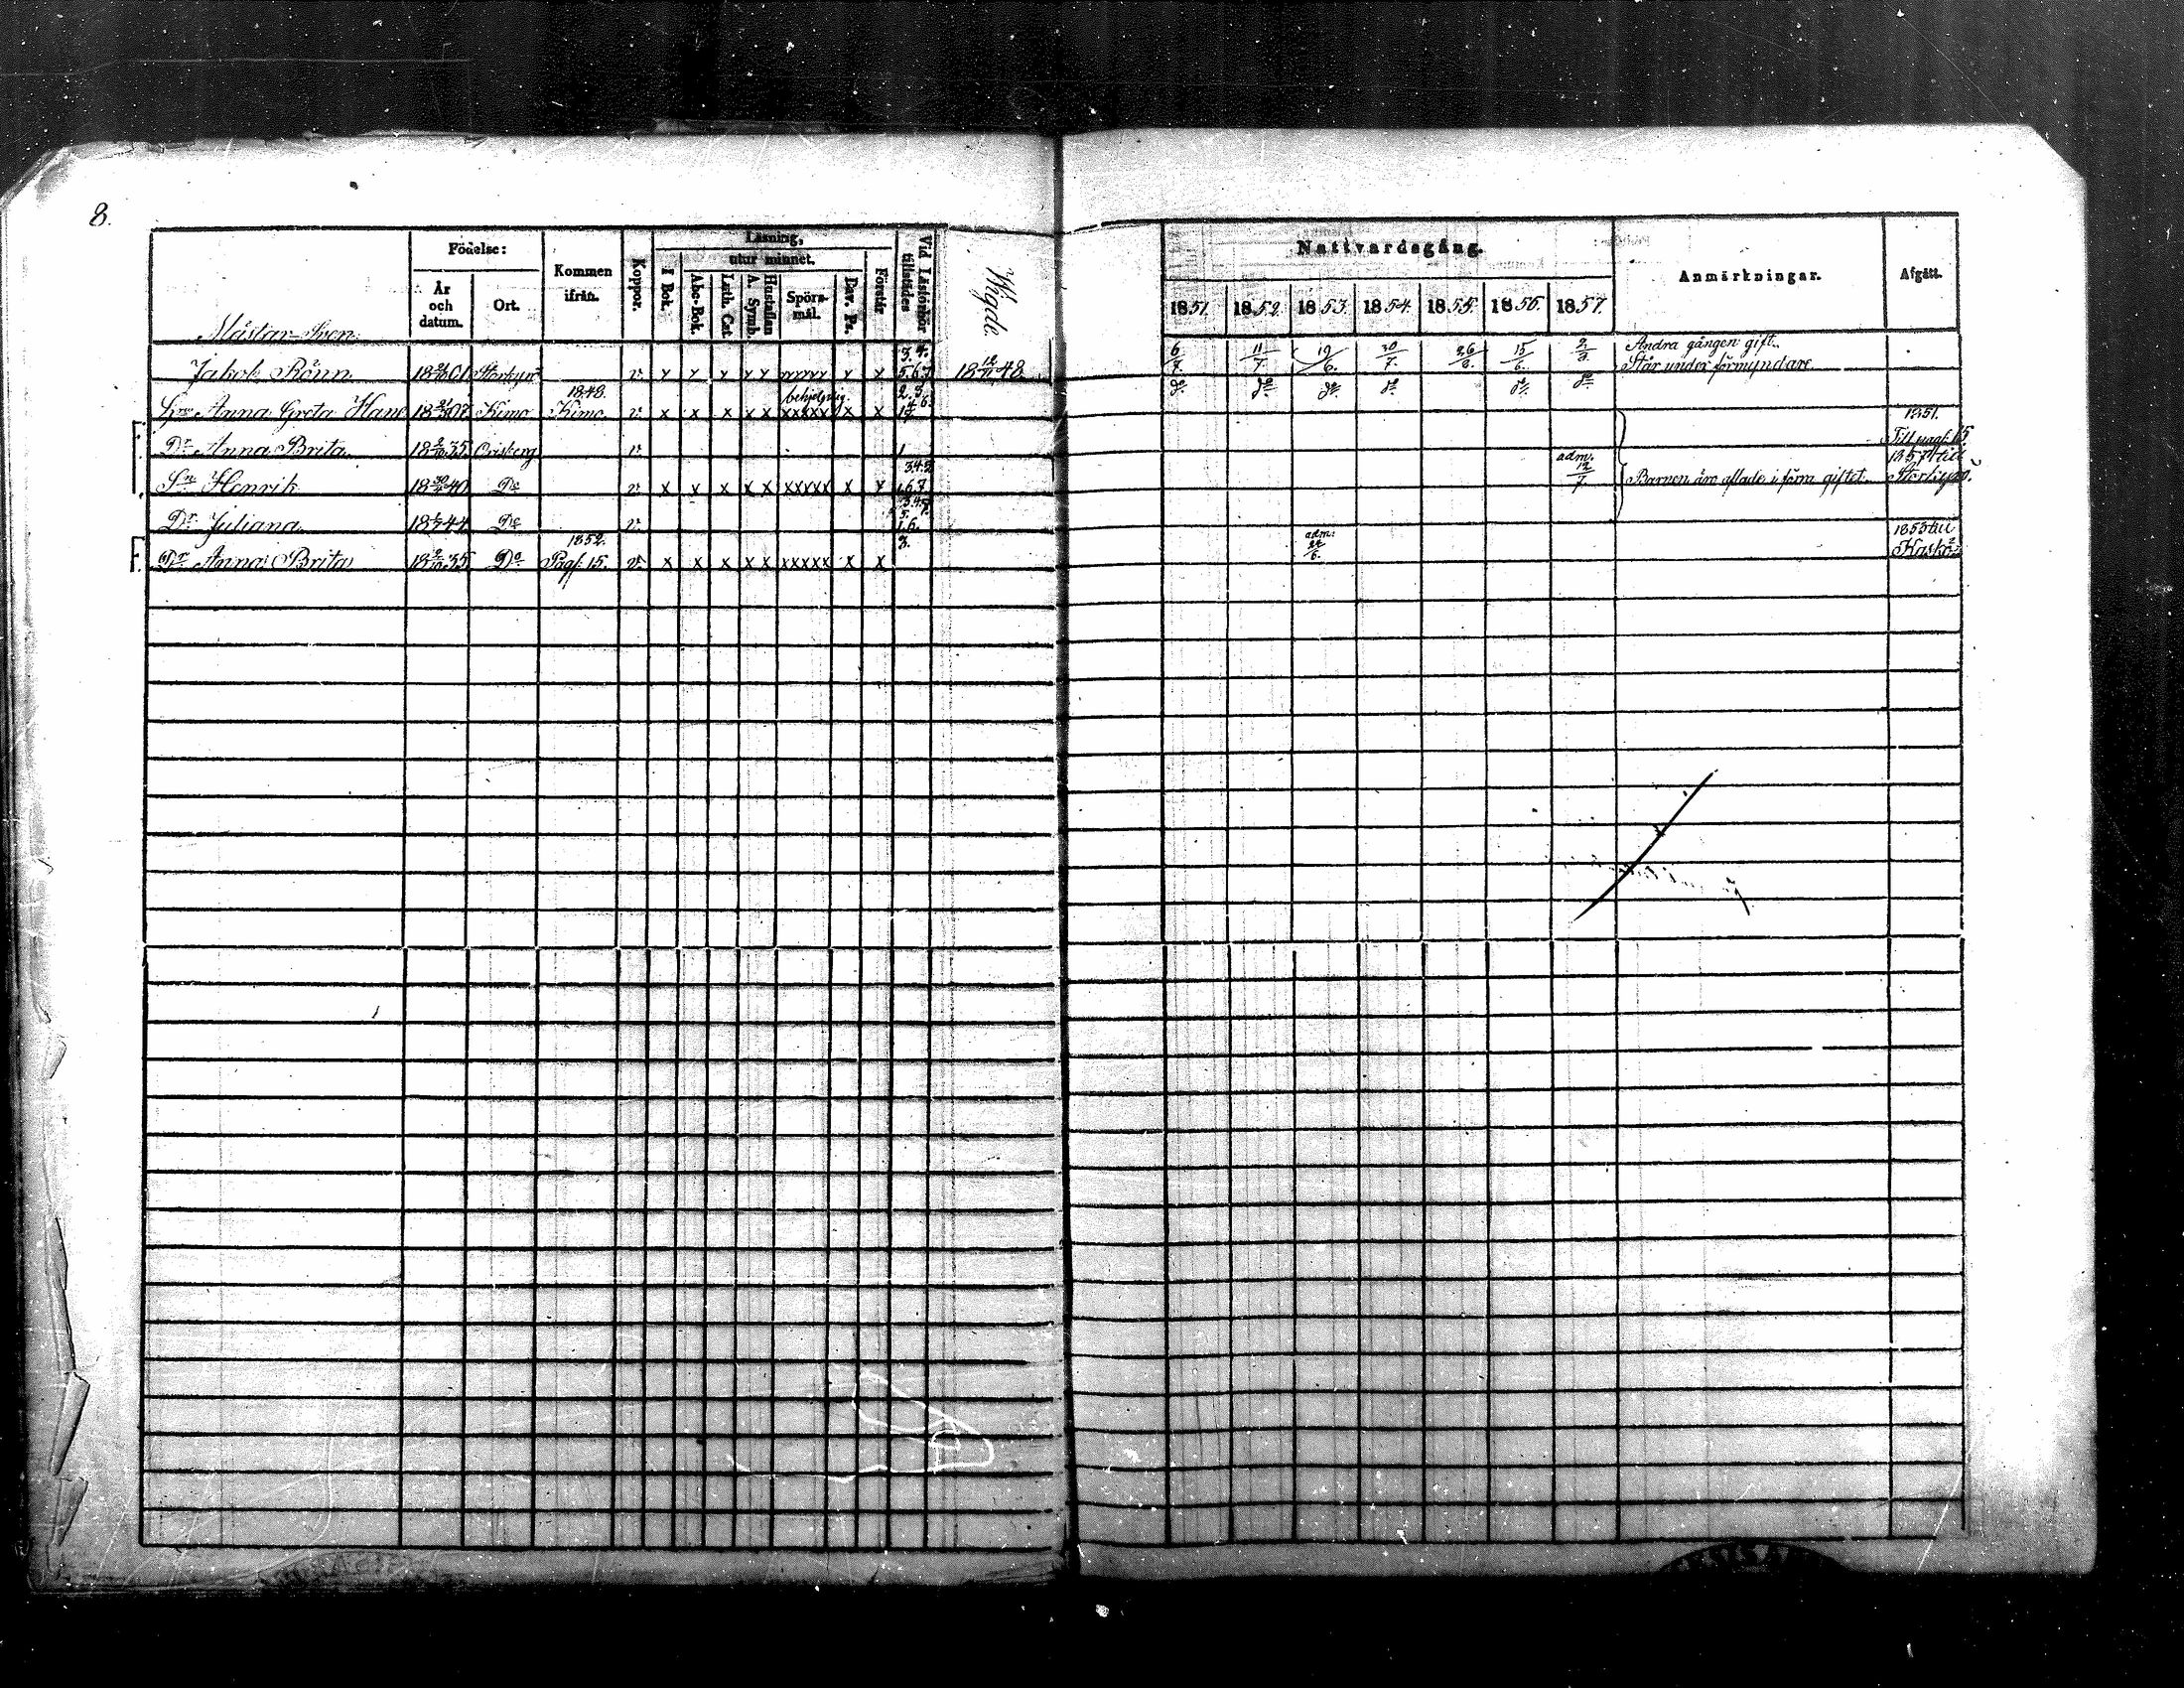 8.
Födelse:
År och datum.
Ort.
Kommen ifrån.
Koppor.
Läsning,
utur minnet.
I Bok.
Abc-Bok.
Luth. Cat.
Hustaflan
A. Symb.
Spörs-mål.
Dav. Ps.
Förstår
Vid Läsförhör tillstädes
Wigde.
Nattvardsgång.
1851. 1852. 1853. 1854. 1855. 1856. 1857.
Anmärkningar.
Afgått.
Mästar-Sven
Jakob Rönn 01 Storkyro v x x x x x xxxxx x x 3.4. 5.6.7. 18 12/11 48. 6/7. 11/7. 19/6. 30/7. 26/8. 15/6. Andra gången gift.
Står under förmyndare
Anna Greta Hans 07 Kimo 1848. Kimo v. x x x x x behjelplig. xxxxx x x do. do. do. do. do. do.
Dr. Anna Brita 18 2/10 35 Orisberg v. 1 1851.
Till pag. 15.
Sn. Henrik 40 Do v. x x x x x xxxxx x x adm. 12/7 Barnen äro aflade i förra giftet. 1857 till
Storkyrö.
Dr. Juliana 44 Do v.
Dr. Anna Brita 18 2/10 35 Do 1852. Pag. 15. v. x x x x x xxxxx x x 3. adm: 24/6. 1853 till
Kaskö